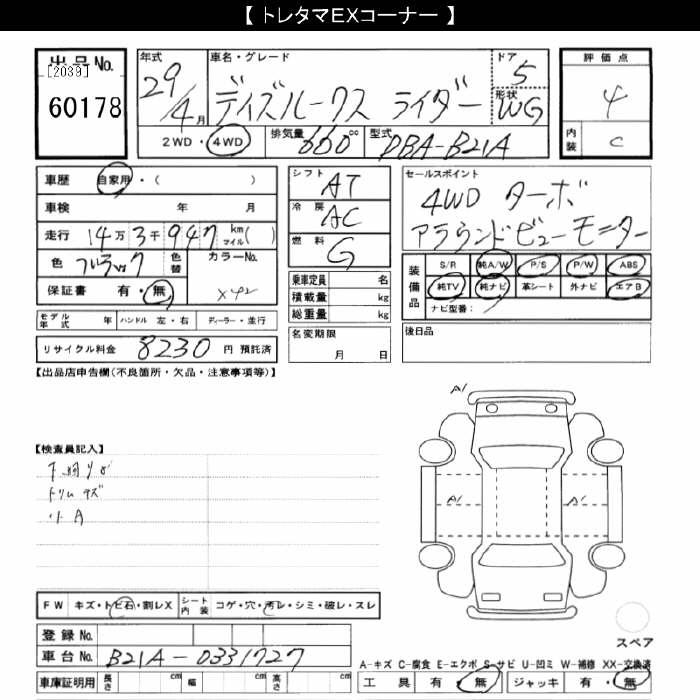 【 トレタマEXコーナー 】
出品No.
[2039]
60178
年式 29/4月
車名・グレード デイズルークス ライダー
ドア 5
形状 WG
評価点 4
内装 C
2WD・4WD 排気量 660cc 型式 DBA-B21A
車歴 自家用・( )
車検 年 月
走行 14万3千947 km マイル( )
色 ブラック 色替 カラーNo. X42
保証書 有・無
モデル年式 年 ハンドル 左・右 ディーラー・並行
リサイクル料金 8230 円 預託済
シフト AT
冷房 AC
燃料 G
乗車定員 名
積載量 kg
総重量 kg
名変期限 月 日
セールスポイント
4WD ターボ
アラウンドビューモニター
装備品
S/R 純A/W P/S P/W ABS
純TV 純ナビ 革シート 外ナビ エアB
ナビ型番:
後日品
【出品店申告欄(不良箇所・欠品・注意事項等)】
【検査員記入】
トリムキズ
小A
A1
A1
A1
FW キズ・トビ石・割レX シート内装 コゲ・穴・汚レ・シミ・破レ・スレ
登録No.
車台No. B21A-0331727
車庫証明用 長さ cm 幅 cm 高さ cm
スペア
A-キズ C-腐食 E-エクボ S-サビ U-凹ミ W-補修 XX-交換済
工具 有・無 ジャッキ 有・無